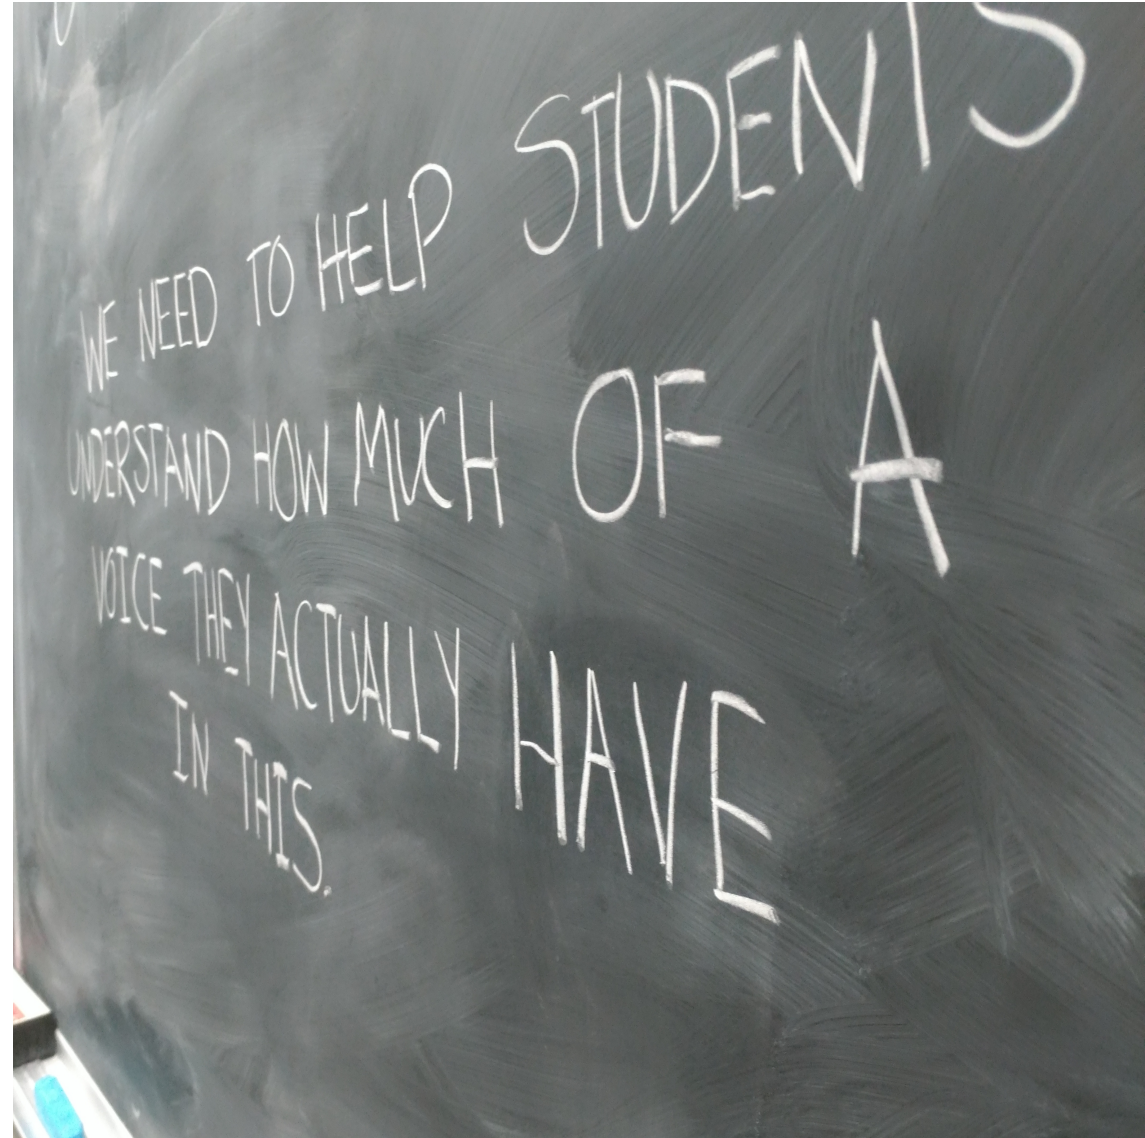 WE NEED TO HELP STUDENTS
UNDERSTAND HOW MUCH OF A
VOICE THEY ACTUALLY HAVE
IN THIS.